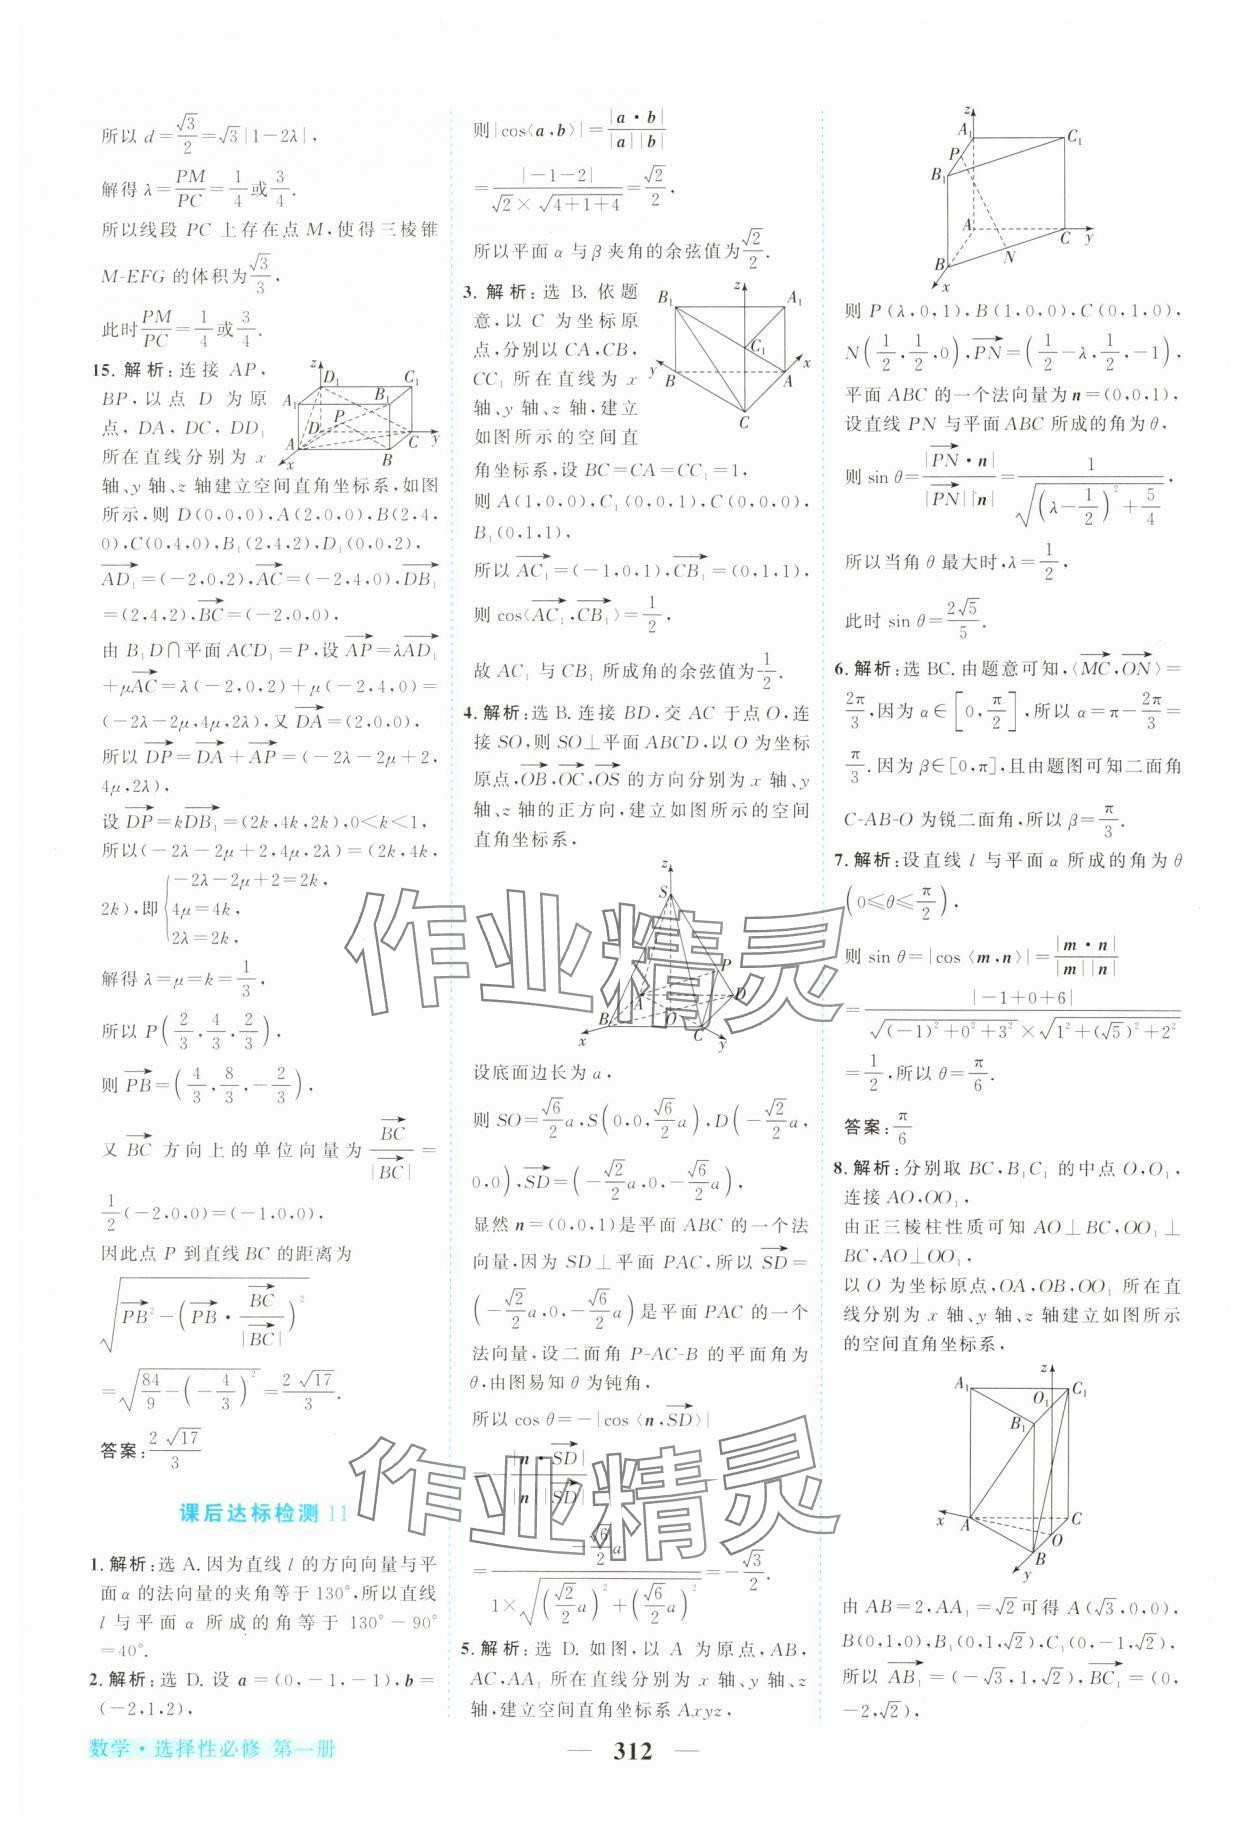 所以 d=√3/2=√3|1-2λ|,
解得 λ=PM/PC=1/4或3/4.
所以线段 PC 上存在点 M,使得三棱锥
M-EFG 的体积为√3/3,
此时PM/PC=1/4或3/4.
15. 解析:连接 AP,
BP,以点 D 为原
点,DA,DC,DD₁
所在直线分别为 x
轴、y 轴、z 轴建立空间直角坐标系,如图
所示,则 D(0,0,0),A(2,0,0),B(2,4,
0),C(0,4,0),B₁(2,4,2),D₁(0,0,2),
AD₁→=(-2,0,2),AC→=(-2,4,0),DB₁→
=(2,4,2),BC→=(-2,0,0),
由 B₁D∩平面 ACD₁=P,设 AP→=λAD₁→
+μAC→=λ(-2,0,2)+μ(-2,4,0)=
(-2λ-2μ,4μ,2λ),又 DA→=(2,0,0),
所以 DP→=DA→+AP→=(-2λ-2μ+2,
4μ,2λ),
设 DP→=kDB₁→=(2k,4k,2k),0<k<1,
所以(-2λ-2μ+2,4μ,2λ)=(2k,4k,
2k),即{-2λ-2μ+2=2k,
4μ=4k,
2λ=2k,
解得 λ=μ=k=1/3,
所以 P(2/3,4/3,2/3),
则 PB→=(4/3,8/3,-2/3),
又 BC→ 方向上的单位向量为 BC→/|BC→|=
1/2(-2,0,0)=(-1,0,0),
因此点 P 到直线 BC 的距离为
√(PB→²-(PB→·BC→/|BC→|)²)
=√(84/9-(-4/3)²)=2√17/3.
答案:2√17/3
课后达标检测 11
1. 解析:选 A. 因为直线 l 的方向向量与平
面 α 的法向量的夹角等于 130°,所以直线
l 与平面 α 所成的角等于 130°-90°
=40°.
2. 解析:选 D. 设 a=(0,-1,-1),b=
(-2,1,2),
则|cos⟨a,b⟩|=|a·b|/|a||b|
=|-1-2|/(√2×√(4+1+4))=√2/2,
所以平面 α 与 β 夹角的余弦值为√2/2.
3. 解析:选 B. 依题
意,以 C 为坐标原
点,分别以 CA,CB,
CC₁ 所在直线为 x
轴、y 轴、z 轴,建立
如图所示的空间直
角坐标系,设 BC=CA=CC₁=1,
则 A(1,0,0),C₁(0,0,1),C(0,0,0),
B₁(0,1,1),
所以 AC₁→=(-1,0,1),CB₁→=(0,1,1),
则 cos⟨AC₁→,CB₁→⟩=1/2,
故 AC₁ 与 CB₁ 所成角的余弦值为1/2.
4. 解析:选 B. 连接 BD,交 AC 于点 O,连
接 SO,则 SO⊥平面 ABCD,以 O 为坐标
原点,OB→,OC→,OS→ 的方向分别为 x 轴、y
轴、z 轴的正方向,建立如图所示的空间
直角坐标系,
设底面边长为 a,
则 SO=√6/2 a,S(0,0,√6/2 a),D(-√2/2 a,
0,0),SD→=(-√2/2 a,0,-√6/2 a),
显然 n=(0,0,1)是平面 ABC 的一个法
向量,因为 SD⊥平面 PAC,所以 SD→=
(-√2/2 a,0,-√6/2 a)是平面 PAC 的一个
法向量,设二面角 P-AC-B 的平面角为
θ,由图易知 θ 为钝角,
所以 cos θ=-|cos⟨n,SD→⟩|
=-|n·SD→|/|n||SD→|
=-(√6/2 a)/(1×√((√2/2 a)²+(√6/2 a)²))=-√3/2.
5. 解析:选 D. 如图,以 A 为原点,AB,
AC,AA₁ 所在直线分别为 x 轴、y 轴、z
轴,建立空间直角坐标系 Axyz,
则 P(λ,0,1),B(1,0,0),C(0,1,0),
N(1/2,1/2,0),PN→=(1/2-λ,1/2,-1),
平面 ABC 的一个法向量为 n=(0,0,1),
设直线 PN 与平面 ABC 所成的角为 θ,
则 sin θ=|PN→·n|/|PN→||n|=1/√((λ-1/2)²+5/4),
所以当角 θ 最大时,λ=1/2,
此时 sin θ=2√5/5.
6. 解析:选 BC. 由题意可知,⟨MC→,ON→⟩=
2π/3,因为 α∈[0,π/2],所以 α=π-2π/3=
π/3. 因为 β∈[0,π],且由题图可知二面角
C-AB-O 为锐二面角,所以 β=π/3.
7. 解析:设直线 l 与平面 α 所成的角为 θ
(0≤θ≤π/2),
则 sin θ=|cos⟨m,n⟩|=|m·n|/|m||n|
=|-1+0+6|/(√((-1)²+0²+3²)×√(1²+(√5)²+2²))
=1/2,所以 θ=π/6.
答案:π/6
8. 解析:分别取 BC,B₁C₁ 的中点 O,O₁,
连接 AO,OO₁,
由正三棱柱性质可知 AO⊥BC,OO₁⊥
BC,AO⊥OO₁,
以 O 为坐标原点,OA,OB,OO₁ 所在直
线分别为 x 轴、y 轴、z 轴建立如图所示
的空间直角坐标系,
由 AB=2,AA₁=√2可得 A(√3,0,0),
B(0,1,0),B₁(0,1,√2),C₁(0,-1,√2),
所以 AB₁→=(-√3,1,√2),BC₁→=(0,
-2,√2),
数学·选择性必修 第一册
312
作业精灵
作业精灵